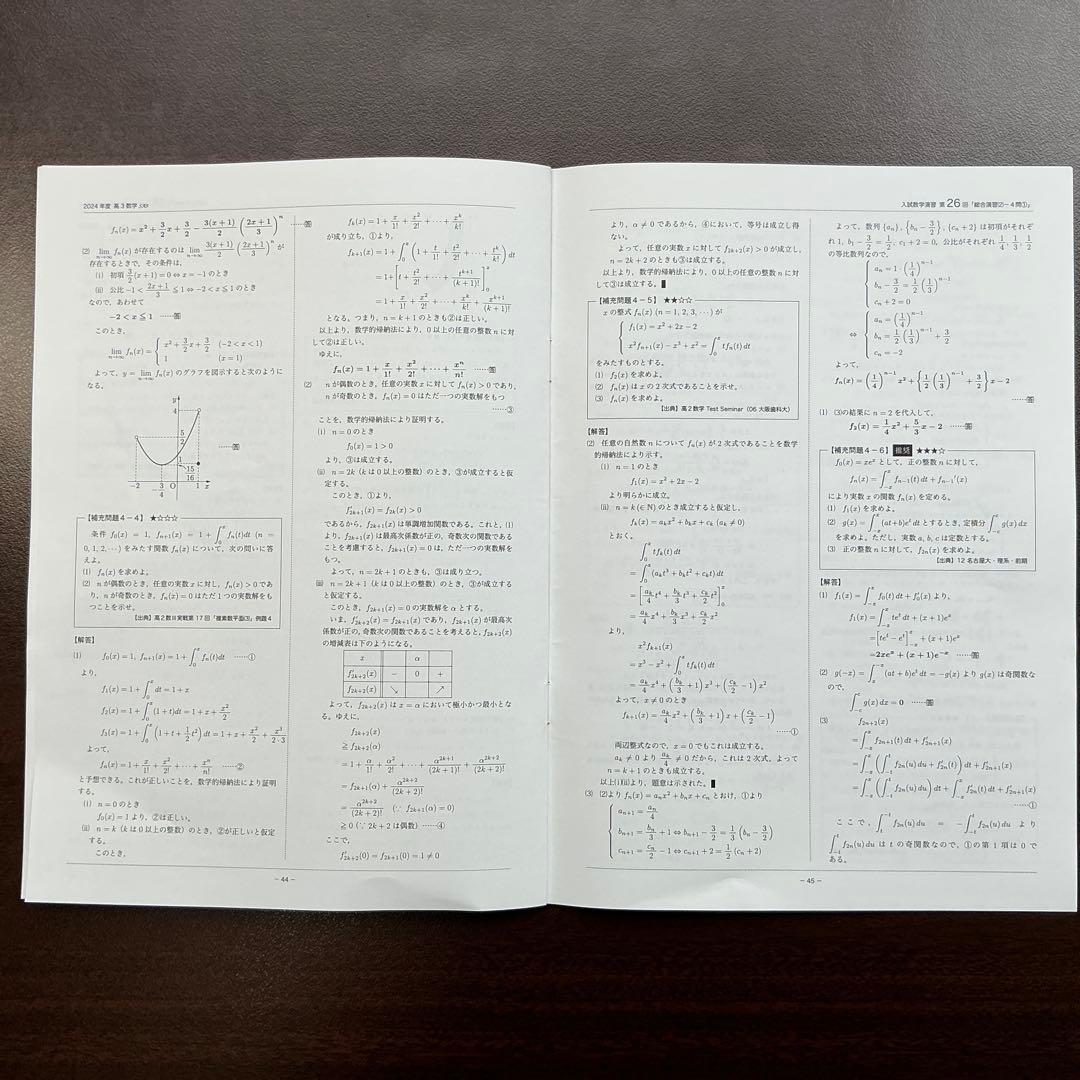 2024年度 高3数学
f_n(x) = x² + 3/2 x + 3/2 − 3(x+1)/2 (2x+1/3)^n ……答
(2) lim_{n→∞} f_n(x) が存在するのは lim_{n→∞} 3(x+1)/2 (2x+1/3)^n が
存在するときで，その条件は，
(i) 初項 3/2 (x+1) = 0 ⇔ x = −1 のとき
(ii) 公比 −1 < 2x+1/3 ≦ 1 ⇔ −2 < x ≦ 1 のとき
なので，あわせて
−2 < x ≦ 1 ……答
このとき，
lim_{n→∞} f_n(x) = { x² + 3/2 x + 3/2 (−2 < x < 1)
1 (x = 1)
よって，y = lim_{n→∞} f_n(x) のグラフを図示すると次のように
なる。
y
4
5/2
1
15/16
−2 −3/4 O 1 x
……答
【補充問題4－4】★☆☆☆
条件 f₀(x) = 1, f_{n+1}(x) = 1 + ∫₀^x f_n(t)dt (n =
0, 1, 2, ⋯) をみたす関数 f_n(x) について，次の問いに答
えよ。
(1) f_n(x) を求めよ。
(2) n が偶数のとき，任意の実数 x に対し，f_n(x) > 0 であ
り，n が奇数のとき，f_n(x) = 0 はただ1つの実数解をも
つことを示せ。
【出典】高2数Ⅲ実戦第17回「複素数平面(3)」例題4
【解答】
(1) f₀(x) = 1, f_{n+1}(x) = 1 + ∫₀^x f_n(t)dt ……①
より，
f₁(x) = 1 + ∫₀^x dt = 1 + x
f₂(x) = 1 + ∫₀^x (1+t)dt = 1 + x + x²/2
f₃(x) = 1 + ∫₀^x (1 + t + 1/2 t²) dt = 1 + x + x²/2 + x³/2·3
よって，
f_n(x) = 1 + x/1! + x²/2! + ⋯ + x^n/n! ……②
と予想できる。これが正しいことを，数学的帰納法により証明
する。
(i) n = 0 のとき
f₀(x) = 1 より，②は正しい。
(ii) n = k (k は0以上の整数) のとき，②が正しいと仮定
する。
このとき，
f_k(x) = 1 + x/1! + x²/2! + ⋯ + x^k/k!
が成り立ち，①より，
f_{k+1}(x) = 1 + ∫₀^x (1 + t/1! + t²/2! + ⋯ + t^k/k!) dt
= 1 + [t + t²/2! + ⋯ + t^{k+1}/(k+1)!]₀^x
= 1 + x/1! + x²/2! + ⋯ + x^k/k! + x^{k+1}/(k+1)!
となる。つまり，n = k+1 のときも②は正しい。
以上より，数学的帰納法により，0以上の任意の整数 n に対
して②は正しい。
ゆえに，
f_n(x) = 1 + x/1! + x²/2! + ⋯ + x^n/n! ……答
(2) n が偶数のとき，任意の実数 x に対して f_n(x) > 0 であり，
n が奇数のとき，f_n(x) = 0 はただ一つの実数解をもつ
……③
ことを，数学的帰納法により証明する。
(i) n = 0 のとき
f₀(x) = 1 > 0
より，③は成立する。
(ii) n = 2k (k は0以上の整数) のとき，③が成立すると仮
定する。
このとき，①より，
f′_{2k+1}(x) = f_{2k}(x) > 0
であるから，f_{2k+1}(x) は単調増加関数である。これと，(1)
より，f_{2k+1}(x) は最高次係数が正の，奇数次の関数である
ことを考慮すると，f_{2k+1}(x) = 0 は，ただ一つの実数解を
もつ。
よって，n = 2k+1 のときも，③は成り立つ。
(iii) n = 2k+1 (k は0以上の整数) のとき，③が成立する
と仮定する。
このとき，f_{2k+1}(x) = 0 の実数解を α とする。
いま，f′_{2k+2}(x) = f_{2k+1}(x) であり，f_{2k+1}(x) が最高次
係数が正の，奇数次の関数であることを考えると，f_{2k+2}(x)
の増減表は下のようになる。
x α
f′_{2k+2}(x) − 0 +
f_{2k+2}(x) ↘ ↗
よって，f_{2k+2}(x) は x = α において極小かつ最小とな
る。ゆえに，
f_{2k+2}(x)
≧ f_{2k+2}(α)
= 1 + α/1! + α²/2! + ⋯ + α^{2k+1}/(2k+1)! + α^{2k+2}/(2k+2)!
= f_{2k+1}(α) + α^{2k+2}/(2k+2)!
= α^{2k+2}/(2k+2)! (∵ f_{2k+1}(α) = 0)
≧ 0 (∵ 2k+2 は偶数) ……④
ここで，
f′_{2k+2}(0) = f_{2k+1}(0) = 1 ≠ 0
－ 44 －
入試数学演習 第26回「総合演習(2)－4問①」
より，α ≠ 0 であるから，④において，等号は成立し得
ない。
よって，任意の実数 x に対して f_{2k+2}(x) > 0 が成立し，
n = 2k+2 のときも③は成立する。
以上より，数学的帰納法により，0以上の任意の整数 n に対
して③は成立する。
【補充問題4－5】★★☆☆
x の整式 f_n(x) (n = 1, 2, 3, ⋯) が
{ f₁(x) = x² + 2x − 2
x² f_{n+1}(x) = x³ − x² + ∫₀^x t f_n(t) dt
をみたすものとする。
(1) f₂(x) を求めよ。
(2) f_n(x) は x の2次式であることを示せ。
(3) f_n(x) を求めよ。
【出典】高2数学 Test Seminar（06 大阪歯科大）
【解答】
(2) 任意の自然数 n について f_n(x) が2次式であることを数学
的帰納法により示す。
(i) n = 1 のとき
f₁(x) = x² + 2x − 2
より明らかに成立。
(ii) n = k (∈ ℕ) のとき成立すると仮定し，
f_k(x) = a_k x² + b_k x + c_k (a_k ≠ 0)
とおく。
∫₀^x t f_k(t) dt
= ∫₀^x (a_k t³ + b_k t² + c_k t) dt
= [a_k/4 t⁴ + b_k/3 t³ + c_k/2 t²]₀^x
= a_k/4 x⁴ + b_k/3 x³ + c_k/2 x²
より，
x² f_{k+1}(x)
= x³ − x² + ∫₀^x t f_k(t) dt
= a_k/4 x⁴ + (b_k/3 + 1) x³ + (c_k/2 − 1) x²
よって，x ≠ 0 のとき
f_{k+1}(x) = a_k/4 x² + (b_k/3 + 1) x + (c_k/2 − 1)
……①
両辺整式なので，x = 0 でもこれは成立する。
a_k ≠ 0 より a_k/4 ≠ 0 だから，これは2次式。よって
n = k+1 のときも成立する。
以上(i)(ii)より，題意は示された。
(3) (2)より f_n(x) = a_n x² + b_n x + c_n とおけ，①より
{ a_{n+1} = a_n/4
b_{n+1} = b_n/3 + 1 ⇔ b_{n+1} − 3/2 = 1/3 (b_n − 3/2)
c_{n+1} = c_n/2 − 1 ⇔ c_{n+1} + 2 = 1/2 (c_n + 2)
よって，数列 {a_n}, {b_n − 3/2}, {c_n + 2} は初項がそれぞ
れ 1, b₁ − 3/2 = 1/2, c₁ + 2 = 0，公比がそれぞれ 1/4, 1/3, 1/2
の等比数列なので，
{ a_n = 1·(1/4)^{n−1}
b_n − 3/2 = 1/2 (1/3)^{n−1}
c_n + 2 = 0
⇔ { a_n = (1/4)^{n−1}
b_n = 1/2 (1/3)^{n−1} + 3/2
c_n = −2
よって，
f_n(x) = (1/4)^{n−1} x² + {1/2 (1/3)^{n−1} + 3/2} x − 2
……答
(1) (3)の結果に n = 2 を代入して，
f₂(x) = 1/4 x² + 5/3 x − 2 ……答
【補充問題4－6】推奨 ★★★☆
f₀(x) = xe^x として，正の整数 n に対して，
f_n(x) = ∫_{−x}^x f_{n−1}(t) dt + f_{n−1}′(x)
により実数 x の関数 f_n(x) を定める。
(1) f₁(x) を求めよ。
(2) g(x) = ∫_{−x}^x (at + b)e^t dt とするとき，定積分 ∫_{−c}^c g(x) dx
を求めよ。ただし，実数 a, b, c は定数とする。
(3) 正の整数 n に対して，f_{2n}(x) を求めよ。
【出典】12 名古屋大・理系・前期
【解答】
(1) f₁(x) = ∫_{−x}^x f₀(t) dt + f₀′(x) より，
f₁(x) = ∫_{−x}^x te^t dt + (x+1)e^x
= [te^t − e^t]_{−x}^x + (x+1)e^x
= 2xe^x + (x+1)e^{−x} ……答
(2) g(−x) = ∫_x^{−x} (at + b)e^t dt = −g(x) より g(x) は奇関数な
ので，
∫_{−c}^c g(x) dx = 0 ……答
(3) f_{2n+2}(x)
= ∫_{−x}^x f_{2n+1}(t) dt + f′_{2n+1}(x)
= ∫_{−x}^x (∫_{−t}^t f_{2n}(u) du + f′_{2n}(t)) dt + f′_{2n+1}(x)
= ∫_{−x}^x (∫_{−t}^t f_{2n}(u) du) dt + ∫_{−x}^x f′_{2n}(t) dt + f′_{2n+1}(x)
……①
ここで，∫_t^{−t} f_{2n}(u) du = −∫_{−t}^t f_{2n}(u) du より
∫_{−t}^t f_{2n}(u) du は t の奇関数なので，①の第1項は0で
ある。
－ 45 －